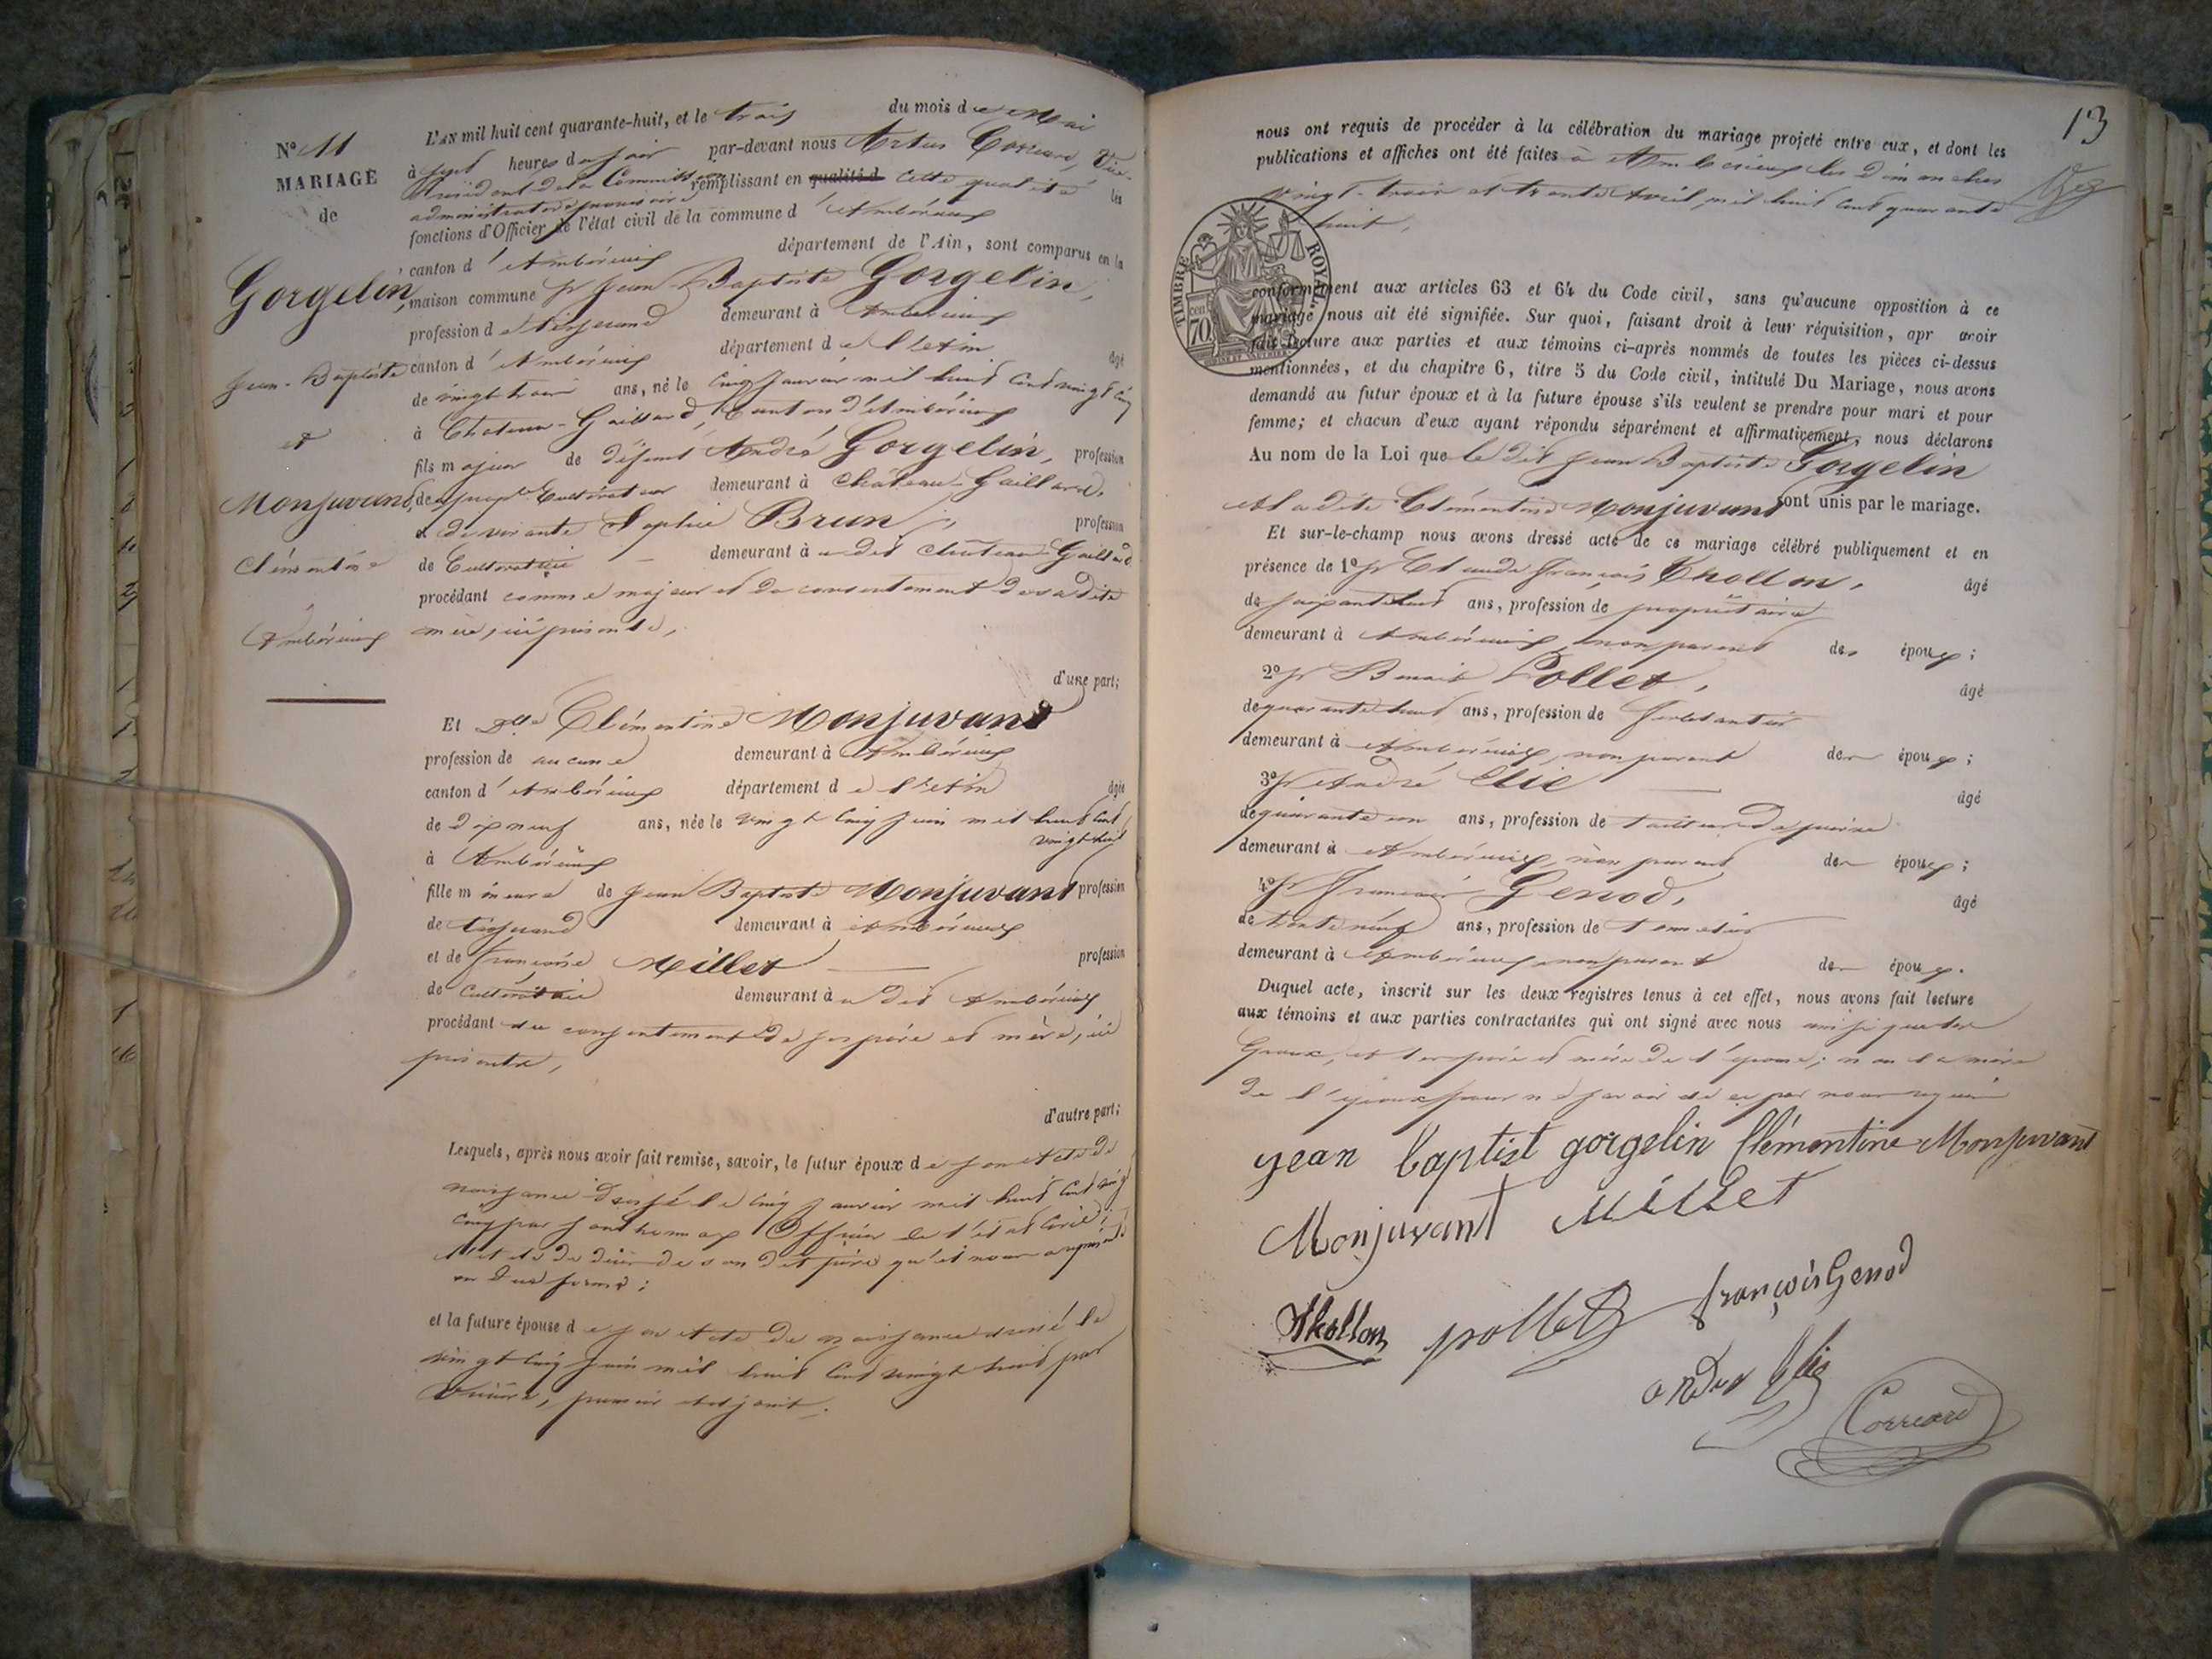 N° 11
MARIAGE
de
Gorgelin,
Jean-Baptiste
et
Monjuvant,
Clémentine
Ambérieux
L'AN mil huit cent quarante-huit, et le trois du mois de Mai
à sept heures du soir par-devant nous Artus Correard, Vice-
Président de la Commission remplissant en qualité d cette qualité les
administrative provisoire
fonctions d'Officier de l'état civil de la commune d'Ambérieux
canton d'Ambérieux département de l'Ain, sont comparus en la
maison commune Sr Jean-Baptiste Gorgelin,
profession de tisserand demeurant à Ambérieux
canton d'Ambérieux département de l'Ain âgé
de vingt trois ans, né le cinq Janvier mil huit cent vingt cinq
à Chateau-Gaillard, Canton d'Ambérieux
fils majeur de défunt André Gorgelin, profession
de Cultivateur demeurant à Château-Gaillard,
et de vivante Sophie Brun, profession
de Cultivatrice demeurant à udit Château-Gaillard
procédant comme majeur et du consentement de sa dite
mère, ici présente,
d'une part;
Et Dlle Clémentine Monjuvant
profession de aucune demeurant à Ambérieux
canton d'Ambérieux département de l'Ain âgée
de dix neuf ans, née le vingt cinq Juin mil huit cent
vingt huit
à Ambérieux
fille mineure de Jean Baptiste Monjuvant profession
de tisserand demeurant à Ambérieux
et de Françoise Millet profession
de cultivatrice demeurant à udit Ambérieux
procédant du consentement de ses père et mère, ici
présents,
d'autre part;
Lesquels, après nous avoir fait remise, savoir, le futur époux de son Acte de
naissance dressé le cinq Janvier mil huit cent vingt
cinq par Officier de l'état Civil;
l'acte de décès de son dit père qu'il nous a
en due forme;
et la future épouse de son Acte de naissance dressé le
vingt cinq Juin mil huit cent vingt huit par
premier adjoint.
13
nous ont requis de procéder à la célébration du mariage projeté entre eux, et dont les
publications et affiches ont été faites à Ambérieux les dimanches
vingt-trois et trente Avril, mil huit cent quarante
huit,
TIMBRE ROYAL
70 cen
conformément aux articles 63 et 64 du Code civil, sans qu'aucune opposition à ce
mariage nous ait été signifiée. Sur quoi, faisant droit à leur réquisition, apr avoir
fait lecture aux parties et aux témoins ci-après nommés de toutes les pièces ci-dessus
mentionnées, et du chapitre 6, titre 5 du Code civil, intitulé Du Mariage, nous avons
demandé au futur époux et à la future épouse s'ils veulent se prendre pour mari et pour
femme; et chacun d'eux ayant répondu séparément et affirmativement, nous déclarons
Au nom de la Loi que le dit Jean Baptiste Gorgelin
et la dite Clémentine Monjuvant sont unis par le mariage.
Et sur-le-champ nous avons dressé acte de ce mariage célébré publiquement et en
présence de 1° Sr Claude François Thollon, âgé
de ans, profession de propriétaire
demeurant à Ambérieux, non parent des époux;
2° Sr Benoit Pollet, âgé
de quarante huit ans, profession de ferblantier
demeurant à Ambérieux, non parent des époux;
3° Sr André Elie âgé
de quarante un ans, profession de tailleur de pierre
demeurant à Ambérieux, non parent des époux;
4° Sr François Genod, âgé
de trente neuf ans, profession de tonnelier
demeurant à Ambérieux, non parent des époux.
Duquel acte, inscrit sur les deux registres tenus à cet effet, nous avons fait lecture
aux témoins et aux parties contractantes qui ont signé avec nous ainsi que les
époux, et les père et mère de l'épouse; non la mère
de l'époux pour ne savoir de ce par nous requise
jean baptist gorgelin Clémentine Monjuvant
Monjuvant Millet
Thollon pollet françois Genod
andré Elie
Correard